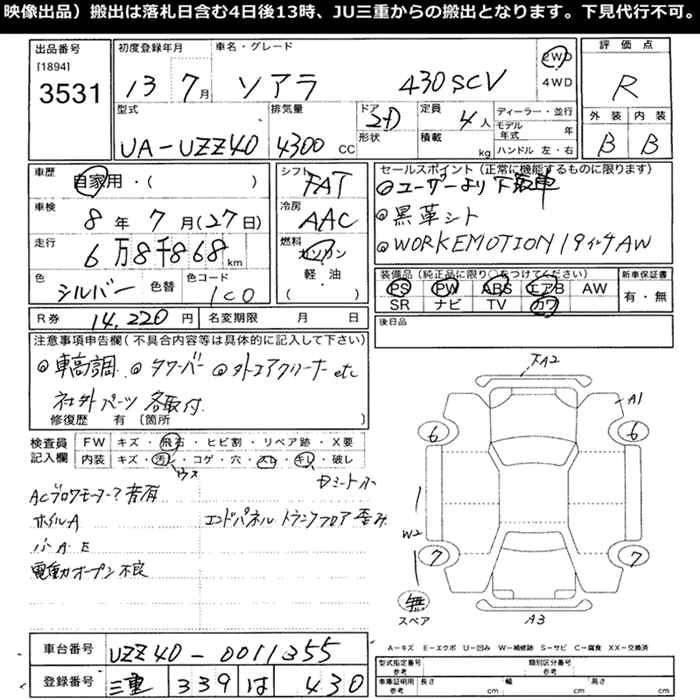 映像出品）搬出は落札日含む4日後13時、JU三重からの搬出となります。下見代行不可。
出品番号 初度登録年月 車名・グレード 2WD 評価点
[1894] 3531 13 7月 ソアラ 430SCV 4WD R
型式 排気量 ドア 2D 定員 4人 ディーラー・並行 外装 内装
UA-UZZ40 4300CC 形状 積載 kg モデル年式 年 B B
ハンドル 左・右
車歴 自家用・( ) シフト FAT セールスポイント（正常に機能するものに限ります）
車検 8年7月(27日) 冷房 AAC ◎ユーザーより下取車
走行 6万8千868km 燃料 ガソリン ◎黒革シート
軽・油 ( ) ◎WORKEMOTION 19インチAW
色 シルバー 色替 色コード 1C0
装備品（純正品に限り○をつけてください） 新車保証書
PS PW ABS エアB AW 有・無
SR ナビ TV カワ
R券 14,220円 名変期限 月 日 後日品
注意事項申告欄（不具合内容等は具体的に記入して下さい）
◎車高調 ◎タワーバー ◎外エアクリーナー etc
社外パーツ各取付
修復歴 有〔箇所 〕
検査員記入欄 FW キズ・飛石・ヒビ割・リペア跡・X要
内装 キズ・汚レ・コゲ・穴・スレ・キレ・破レ
ACブロワモーター?音有
ホイルA エンドパネル トランクフロア歪み
電動オープン不良
A2
A1
6 6
W2
7 7
無
スペア
A3
A－キズ E－エクボ U－凹み W－補修跡 S－サビ C－腐食 XX－交換済
車台番号 UZZ40-0011355
登録番号 三重 339 は 430
型式指定番号 参考 類別区分番号 参考
車庫証明用 参考 長さ cm 幅 cm 高さ cm